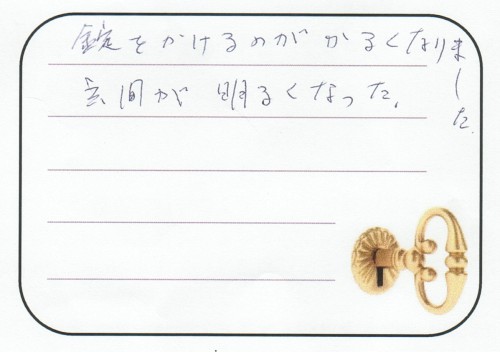 錠をかけるのがかるくなりました。
玄関が明るくなった。